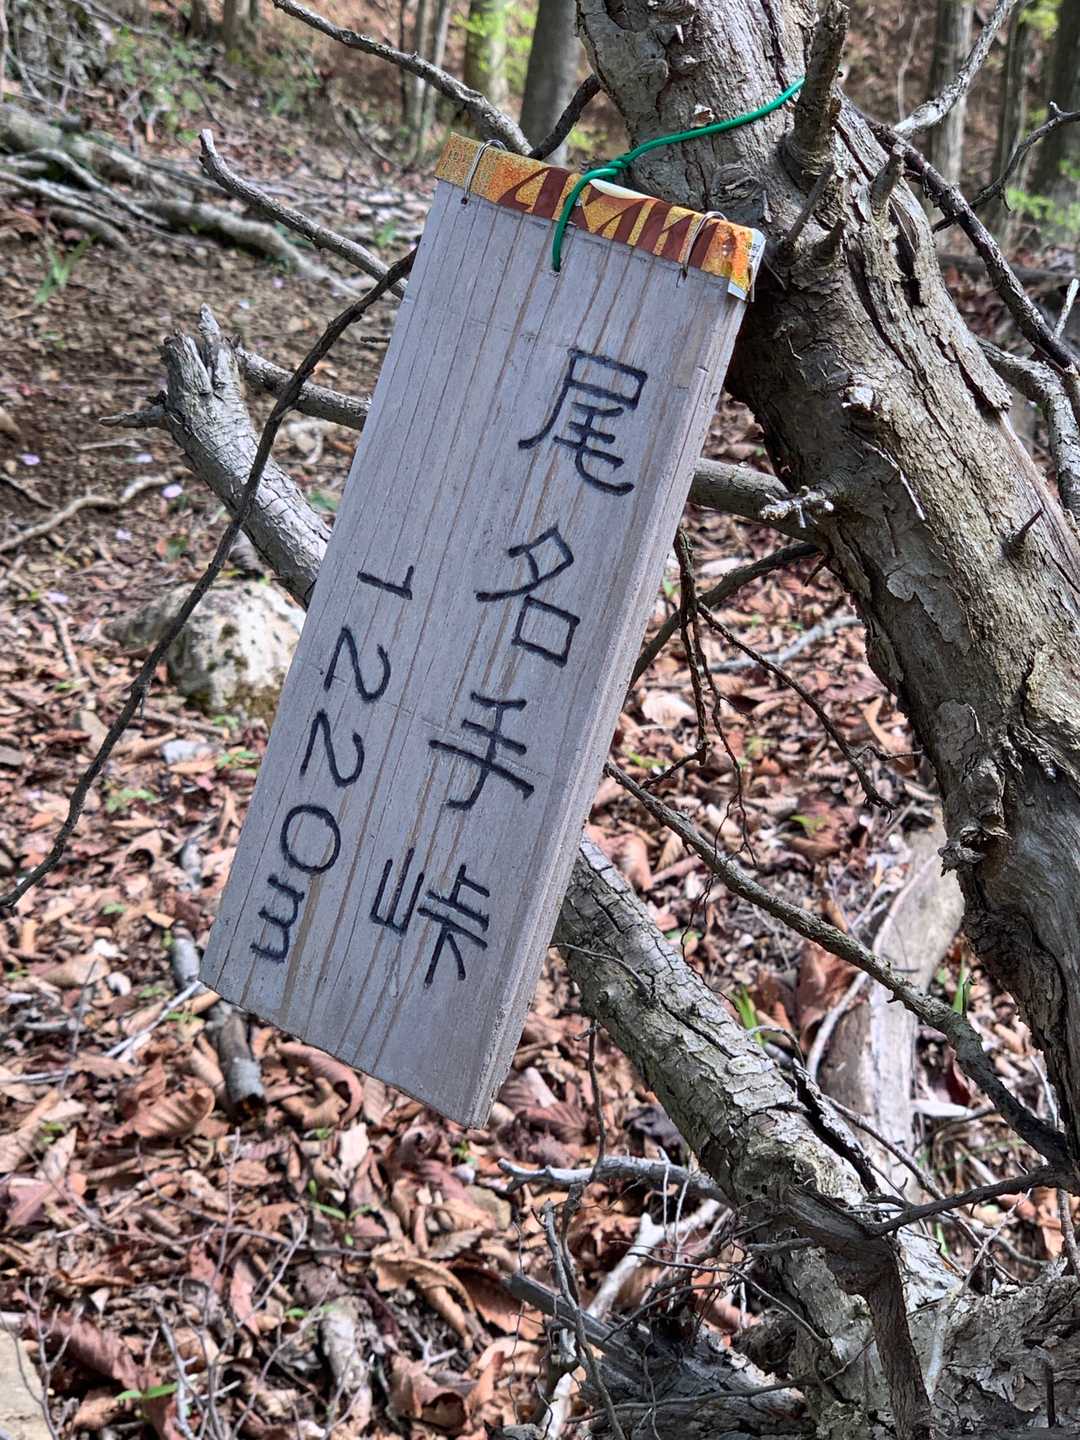 尾名手峠
1220m